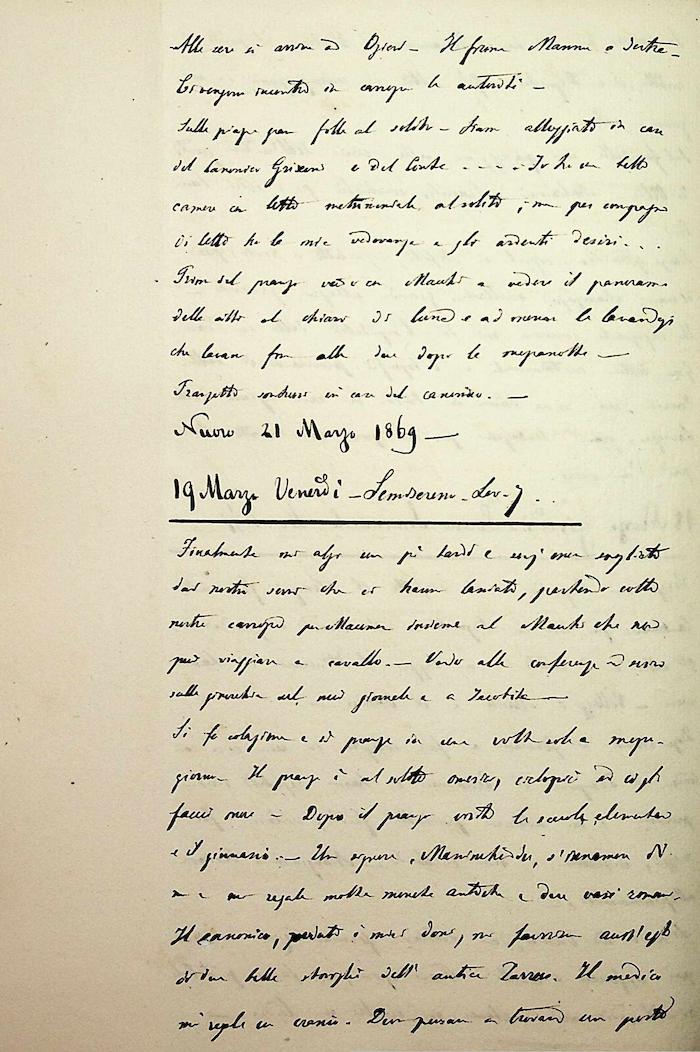 Alla sera si arriva ad Ozieri — Il fiume Mannu a destra —
Ci vengono incontro in carrozza le autorità —
Sulla piazza gran folla al solito — Siam alloggiati in casa
del Canonico Grixoni e del Conte - - - - Io ho un bella
camera con letto matrimoniale al solito; ma per compagno
di letto ho la mia vedovanza e gli ardenti desiri . . .
Prima del pranzo vado con Mauki a vedere il panorama
della città al chiaro di luna e ad mirar le lavandaje
che lavan fino alle due dopo la mezzanotte —
in casa del canonico. —
Nuoro 21 Marzo 1869 —
19 Marzo Venerdì — Semisereno - Lev - 7 . .
Finalmente mi alzo un pò tardi e
dai nostri che ci hanno lasciati, partendo colla
nostra carrozza per Macomer insieme al che non
può viaggiare a cavallo. — Vado alle e scrivo
sulle ginocchia nel mio giornale e a Jacobita —
Si fa colazione e si pranza in una volta sola a mezzo-
giorno — Il pranzo è al solito omerico, ciclopico ed io gli
faccio onore — Dopo il pranzo visito le scuole elementari
e il ginnasio. — Un signore, s'innamora di
me e mi regala molte monete antiche e due vasi romani.
Il canonico, i miei doni, mi anch'egli
di due belle stoviglie dell'antica Tarros. Il medico
mi regala un cranio. Due persone a trovare un posto